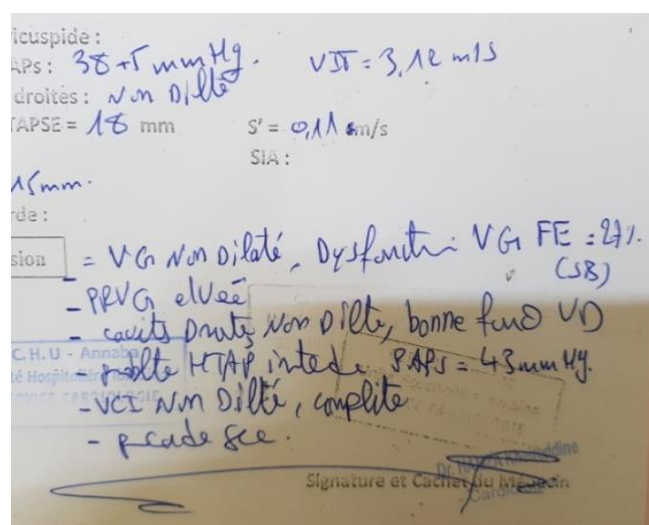 icuspide :
APs : 38+5 mmHg. VIT = 3,12 m/s
droites : Non Dilté
TAPSE = 18 mm S' = 0,11 m/s
SIA :
15mm.
rde :
sion = VG Non Dilaté, Dysfonction VG FE = 27%.
(SB)
- PRVG elveé
- cavits Droites Non Dilte, bonne fonc VD
C.H.U - Annaba
- HTAP PAPs = 43mmHg.
- VCI Non Dilté, complite
- pcade sec.
Signature et Cachet du Médecin